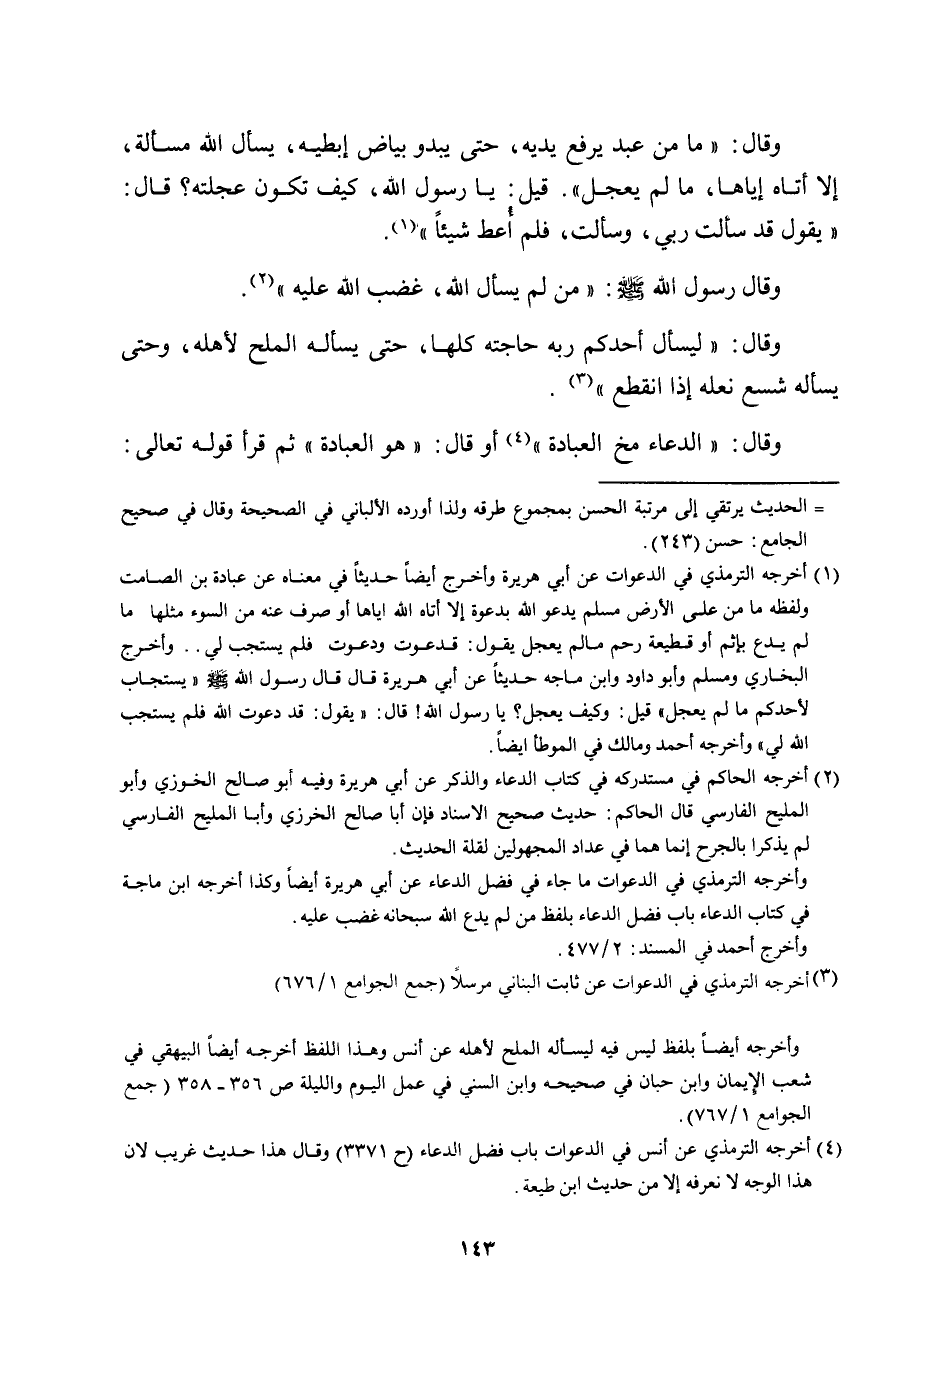 وقال: « ما من عبد يرفع يديه، حتى يبدو بياض إبطيه، يسأل الله مسألة،
إلا أتاه إياها، ما لم يعجل». قيل: يا رسول الله، كيف تكون عجلته؟ قال:
« يقول قد سألت ربي، وسألت، فلم أُعط شيئاً »(١).
وقال رسول الله ﷺ: « من لم يسأل الله، غضب الله عليه »(٢).
وقال: « ليسأل أحدكم ربه حاجته كلها، حتى يسأله الملح لأهله، وحتى
يسأله شسع نعله إذا انقطع »(٣) .
وقال: « الدعاء مخ العبادة »(٤) أو قال: « هو العبادة » ثم قرأ قوله تعالى:
= الحديث يرتقي إلى مرتبة الحسن بمجموع طرقه ولذا أورده الألباني في الصحيحة وقال في صحيح
الجامع: حسن (٢٤٣).
(١) أخرجه الترمذي في الدعوات عن أبي هريرة وأخرج أيضاً حديثاً في معناه عن عبادة بن الصامت
ولفظه ما من على الأرض مسلم يدعو الله بدعوة إلا أتاه الله اياها أو صرف عنه من السوء مثلها ما
لم يدع بإثم أو قطيعة رحم مالم يعجل يقول: قدعوت ودعوت فلم يستجب لي.. وأخرج
البخاري ومسلم وأبو داود وابن ماجه حديثاً عن أبي هريرة قال قال رسول الله ﷺ « يستجاب
لأحدكم ما لم يعجل» قيل: وكيف يعجل؟ يا رسول الله! قال: « يقول: قد دعوت الله فلم يستجب
الله لي» وأخرجه أحمد ومالك في الموطأ ايضاً.
(٢) أخرجه الحاكم في مستدركه في كتاب الدعاء والذكر عن أبي هريرة وفيه أبو صالح الخوزي وأبو
المليح الفارسي قال الحاكم: حديث صحيح الاسناد فإن أبا صالح الخرزي وأبا المليح الفارسي
لم يذكرا بالجرح إنما هما في عداد المجهولين لقلة الحديث.
وأخرجه الترمذي في الدعوات ما جاء في فضل الدعاء عن أبي هريرة أيضاً وكذا أخرجه ابن ماجة
في كتاب الدعاء باب فضل الدعاء بلفظ من لم يدع الله سبحانه غضب عليه.
وأخرج أحمد في المسند: ٤٧٧/٢ .
(٣) أخرجه الترمذي في الدعوات عن ثابت البناني مرسلًا (جمع الجوامع ٦٧٦/١)
وأخرجه أيضاً بلفظ ليس فيه ليسأله الملح لأهله عن أنس وهذا اللفظ أخرجه أيضاً البيهقي في
شعب الإيمان وابن حبان في صحيحه وابن السني في عمل اليوم والليلة ص ٣٥٦ - ٣٥٨ ( جمع
الجوامع ٧٦٧/١).
(٤) أخرجه الترمذي عن أنس في الدعوات باب فضل الدعاء (ح ٣٣٧١) وقال هذا حديث غريب لان
هذا الوجه لا نعرفه إلا من حديث ابن طيعة.
١٤٣